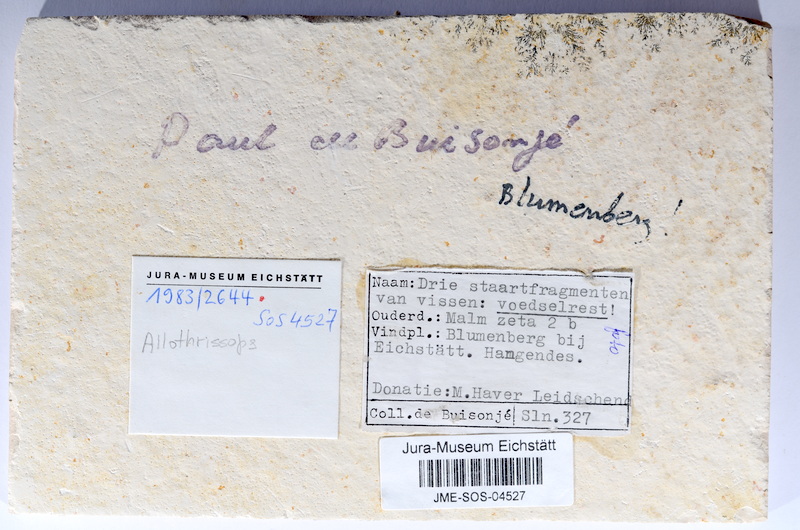 Paul de Buisonjé
Blumenberg!
JURA-MUSEUM EICHSTÄTT
1983/2644.
SOS 4527
Allothrissops
Naam: Drie staartfragmenten
van vissen: voedselrest!
Ouderd.: Malm zeta 2 b
Vindpl.: Blumenberg bij
Eichstätt. Hangendes.
Donatie: M.Haver Leidschend
Coll.de Buisonjé Sln.327
Jura-Museum Eichstätt
JME-SOS-04527